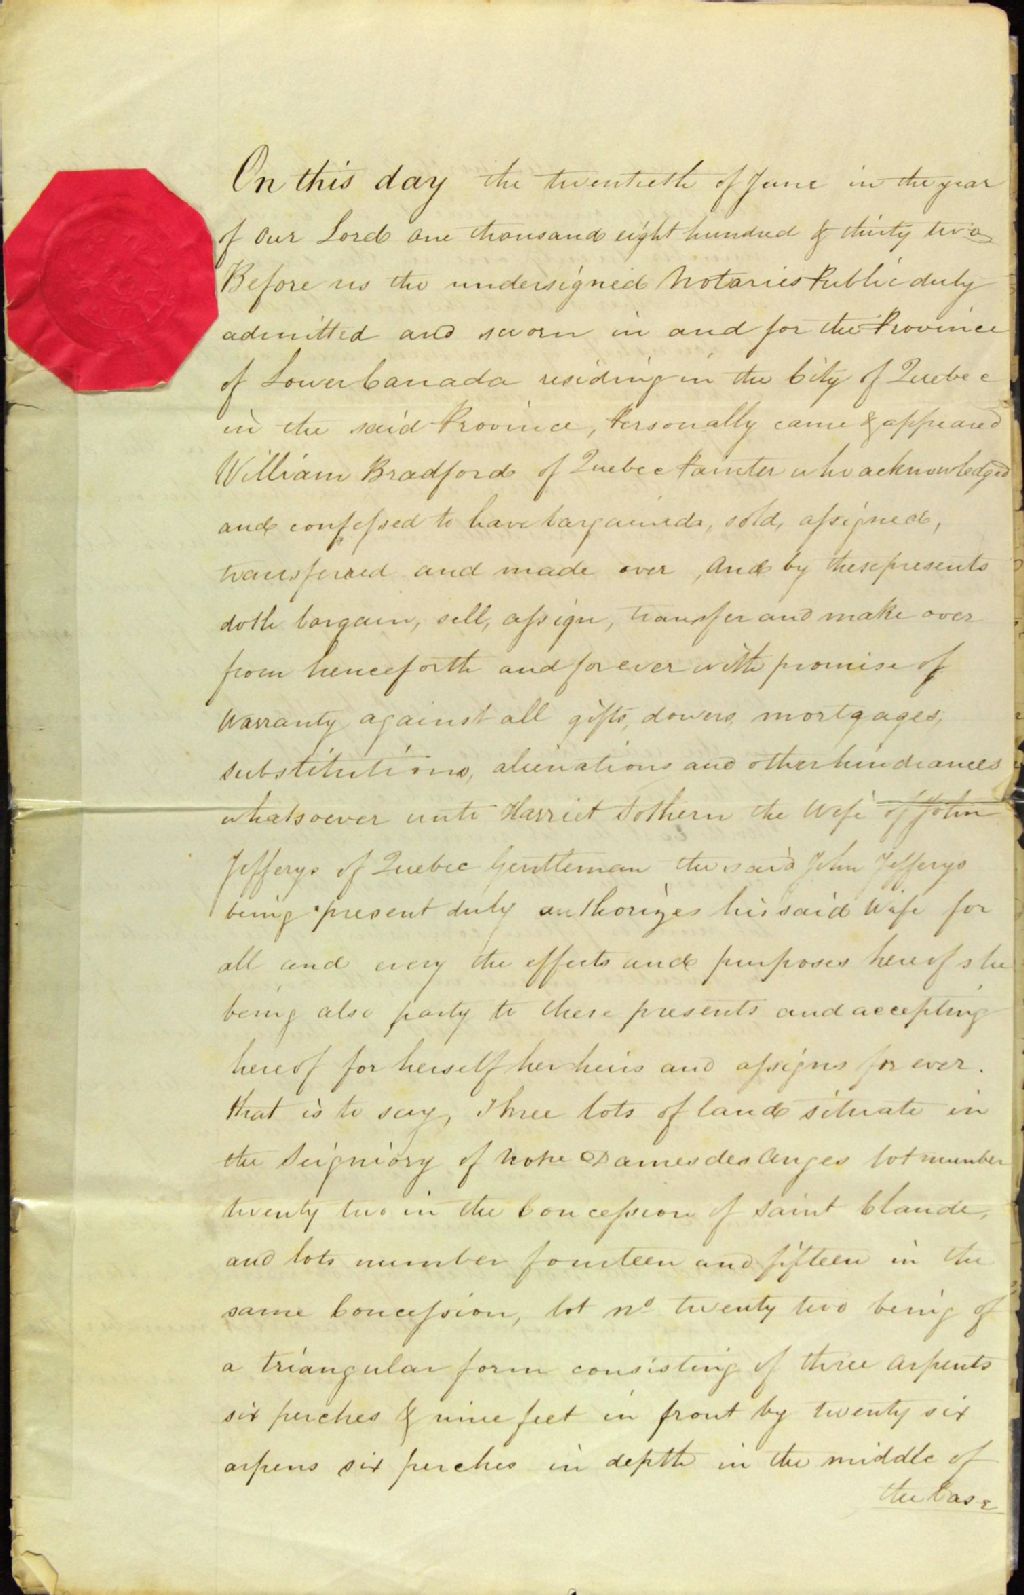 On this day the twentieth of June in the year
of our Lord one thousand eight hundred & thirty two
Before us the undersigned Notaries Public duly
admitted and sworn in and for the Province
of Lower Canada residing in the City of Quebec
in the said Province, Personally came & appeared
William Bradford of Quebec Painter who acknowledged
and confessed to have bargained, sold, assigned,
transferred and made over, and by these presents
doth bargain, sell, assign, transfer and make over
from henceforth and for ever with promise of
Warranty against all gifts, dowers, mortgages,
substitutions, alienations and other hindrances
whatsoever unto Harriet Sothern the Wife of John
Jefferys of Quebec Gentleman the said John Jefferys
being present duly authorizes his said Wife for
all and every the effects and purposes hereof she
being also party to these presents and accepting
hereof for herself her heirs and assigns for ever.
that is to say, Three lots of land situate in
the Seigniory of Notre Dame des Anges lot number
twenty two in the Concession of Saint Claude,
and lots number fourteen and fifteen in the
same Concession, lot no twenty two being of
a triangular form consisting of three arpents
six perches & nine feet in front by twenty six
arpens six perches in depth in the middle of
the Case